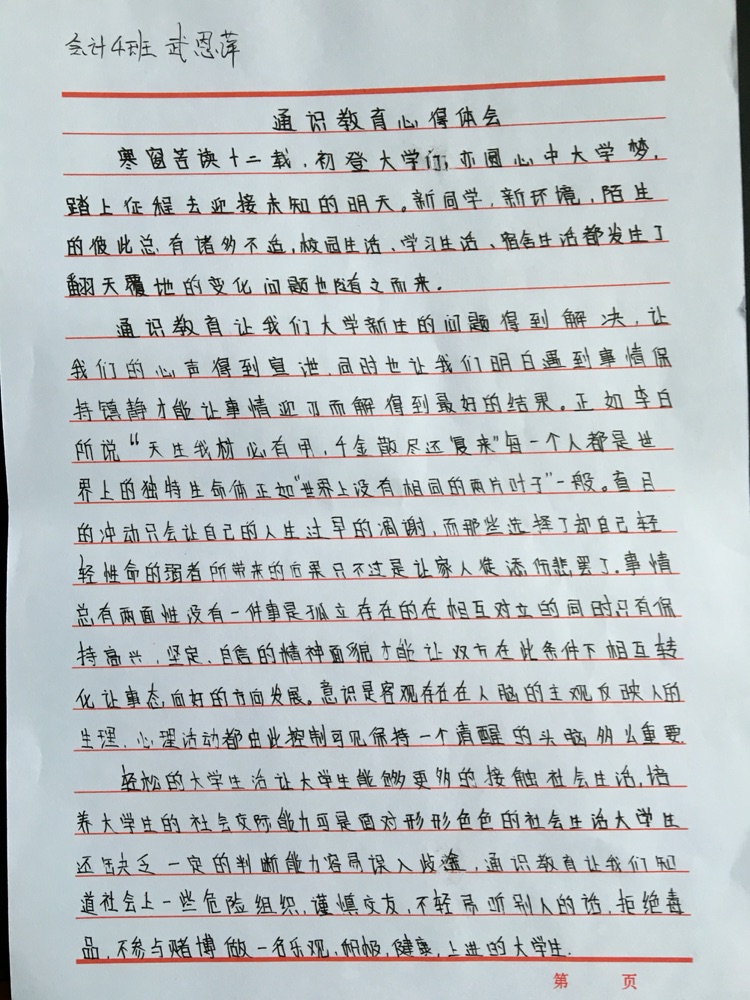 会计4班 武恩萍
通识教育心得体会
寒窗苦读十二载，初登大学门，亦圆心中大学梦，
踏上征程去迎接未知的明天。新同学，新环境，陌生
的彼此总有诸多不适，校园生活、学习生活、宿舍生活都发生了
翻天覆地的变化问题也随之而来。
通识教育让我们大学新生的问题得到解决，让
我们的心声得到宣泄，同时也让我们明白遇到事情保
持镇静才能让事情迎刃而解得到最好的结果。正如李白
所说“天生我材必有用，千金散尽还复来”每一个人都是世
界上的独特生命体正如“世界上没有相同的两片叶子”一般。盲目
的冲动只会让自己的人生过早的凋谢，而那些选择了却自己轻
轻性命的弱者所带来的后果只不过是让家人徒添伤悲罢了。事情
总有两面性没有一件事是孤立存在的在相互对立的同时只有保
持高兴、坚定、自信的精神面貌才能让双方在此条件下相互转
化让事态向好的方向发展。意识是客观存在在人脑的主观反映人的
生理、心理活动都由此控制可见保持一个清醒的头脑多么重要
轻松的大学生活让大学生能够更多的接触社会生活，培
养大学生的社会交际能力可是面对形形色色的社会生活大学生
还缺乏一定的判断能力容易误入歧途，通识教育让我们知
道社会上一些危险组织，谨慎交友，不轻易听别人的话，拒绝毒
品，不参与赌博做一名乐观，积极，健康，上进的大学生.
第 页